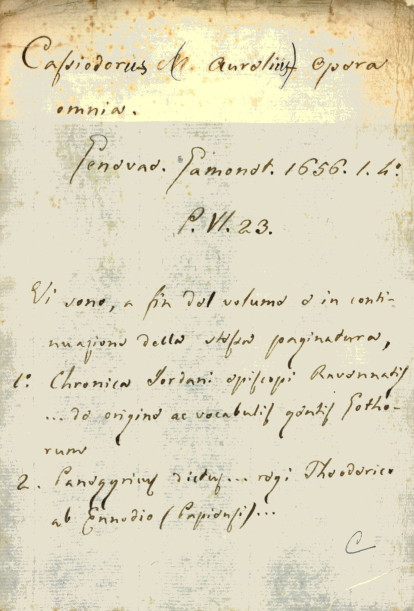 Cassiodorus (M. Aurelius) Opera
omnia.
Genevae. Gamonet. 1656. 1. 4º
P. VI. 23.
Vi sono, a fin del volume e in conti-
nuazione della stessa paginatura,
1º Chronica Jordani episcopi Ravennatis
... de origine ac vocabulis gentis Gotho-
rum
2. Panegyricus dictus... regi Theodorico
ab Ennodio (Papiensis...
C